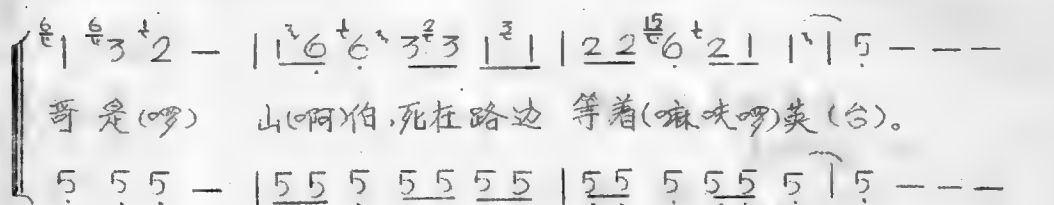 1 3 2 — | 1 6 6 3 3 1 1 | 2 2 6 2 1 1 | 5 — — —
哥是(啰) 山(啊)伯,死在路边 等着(嘛呋啰)英(台)。
5 5 5 — | 5 5 5 5 5 5 5 | 5 5 5 5 5 5 | 5 — — —